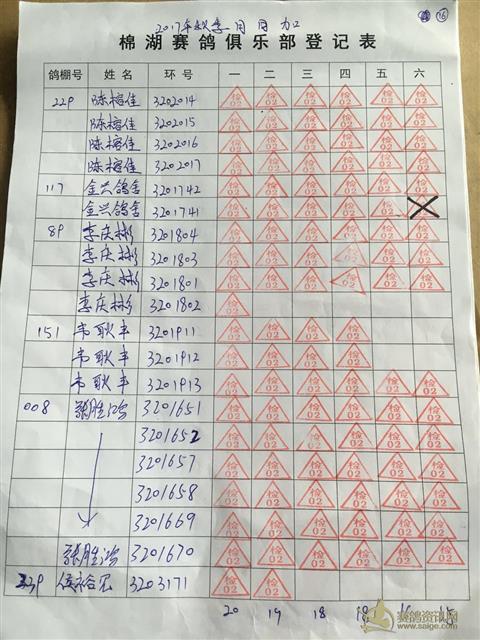 ⑯
2017年秋季 月 日 加
棉湖赛鸽俱乐部登记表
鸽棚号 姓名 环号 一 二 三 四 五 六
229 陈楷佳 3202014 检02 检02 检02 检02 检02 检02
陈楷佳 3202015 检02 检02 检02 检02 检02 检02
陈楷佳 3202016 检02 检02 检02 检02 检02 检02
陈楷佳 3202017 检02 检02 检02 检02 检02 检02
117 金兴鸽舍 3201742 检02 检02 检02 检02 检02 检02
金兴鸽舍 3201741 检02 检02 检02 检02 检02
89 李庆彬 3201804 检02 检02 检02 检02 检02 检02
李庆彬 3201803 检02 检02 检02 检02 检02 检02
李庆彬 3201801 检02 检02 检02 检02 检02 检02
李庆彬 3201802 检02
151 韦耿丰 3201911 检02 检02 检02 检02
韦耿丰 3201912 检02 检02 检02 检02
韦耿丰 3201913 检02 检02 检02 检02 检02 检02
008 张胜鸿 3201651 检02 检02 检02 检02 检02 检02
3201652 检02 检02 检02 检02 检02 检02
3201657 检02 检02 检02 检02 检02 检02
3201658 检02 检02 检02 检02 检02 检02
3201669 检02 检02 检02 检02 检02 检02
张胜鸿 3201670 检02 检02 检02 检02 检02 检02
3203171 检02 检02
20 19 18 18 16 15
赛鸽资讯网
www.saige.com